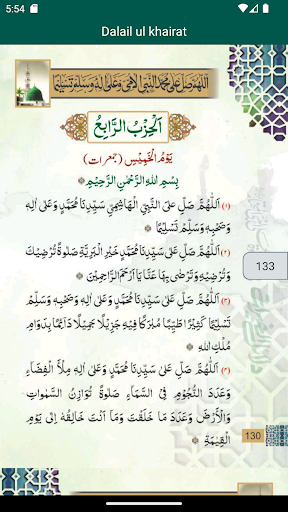 5:54
Dalail ul khairat
اَللّٰهُمَّ صَلِّ عَلٰى مُحَمَّدِ النَّبِيِّ الْاُمِّيِّ وَعَلٰى اٰلِهٖ وَسَلِّمْ تَسْلِيْمًا
اَلْحِزْبُ الرَّابِعُ
يَوْمُ الْخَمِيْسِ (جمعرات)
بِسْمِ اللهِ الرَّحْمٰنِ الرَّحِيْمِ
(۱) اَللّٰهُمَّ صَلِّ عَلَى النَّبِيِّ الْهَاشِمِيِّ سَيِّدِنَا مُحَمَّدٍ وَعَلٰى اٰلِهٖ
وَصَحْبِهٖ وَسَلِّمْ تَسْلِيْمًا
(۲) اَللّٰهُمَّ صَلِّ عَلٰى سَيِّدِنَا مُحَمَّدٍ خَيْرِ الْبَرِيَّةِ صَلٰوةً تُرْضِيْكَ
وَتُرْضِيْهِ وَتَرْضٰى بِهَا عَنَّا يَا اَرْحَمَ الرَّاحِمِيْنَ
(۳) اَللّٰهُمَّ صَلِّ عَلٰى سَيِّدِنَا مُحَمَّدٍ وَعَلٰى اٰلِهٖ وَصَحْبِهٖ وَسَلِّمْ
تَسْلِيْمًا كَثِيْرًا طَيِّبًا مُبَارَكًا فِيْهِ جَزِيْلًا جَمِيْلًا دَآئِمًا بِدَوَامِ
مُلْكِ اللهِ
(۴) اَللّٰهُمَّ صَلِّ عَلٰى سَيِّدِنَا مُحَمَّدٍ وَعَلٰى اٰلِهٖ مِلْأَ الْفَضَاءِ
وَعَدَدَ النُّجُوْمِ فِي السَّمَاءِ صَلٰوةً تُوَازِنُ السَّمٰوَاتِ
وَالْأَرْضَ وَعَدَدَ مَا خَلَقْتَ وَمَا اَنْتَ خَالِقُهٗ اِلٰى يَوْمِ
الْقِيٰمَةِ
133
130